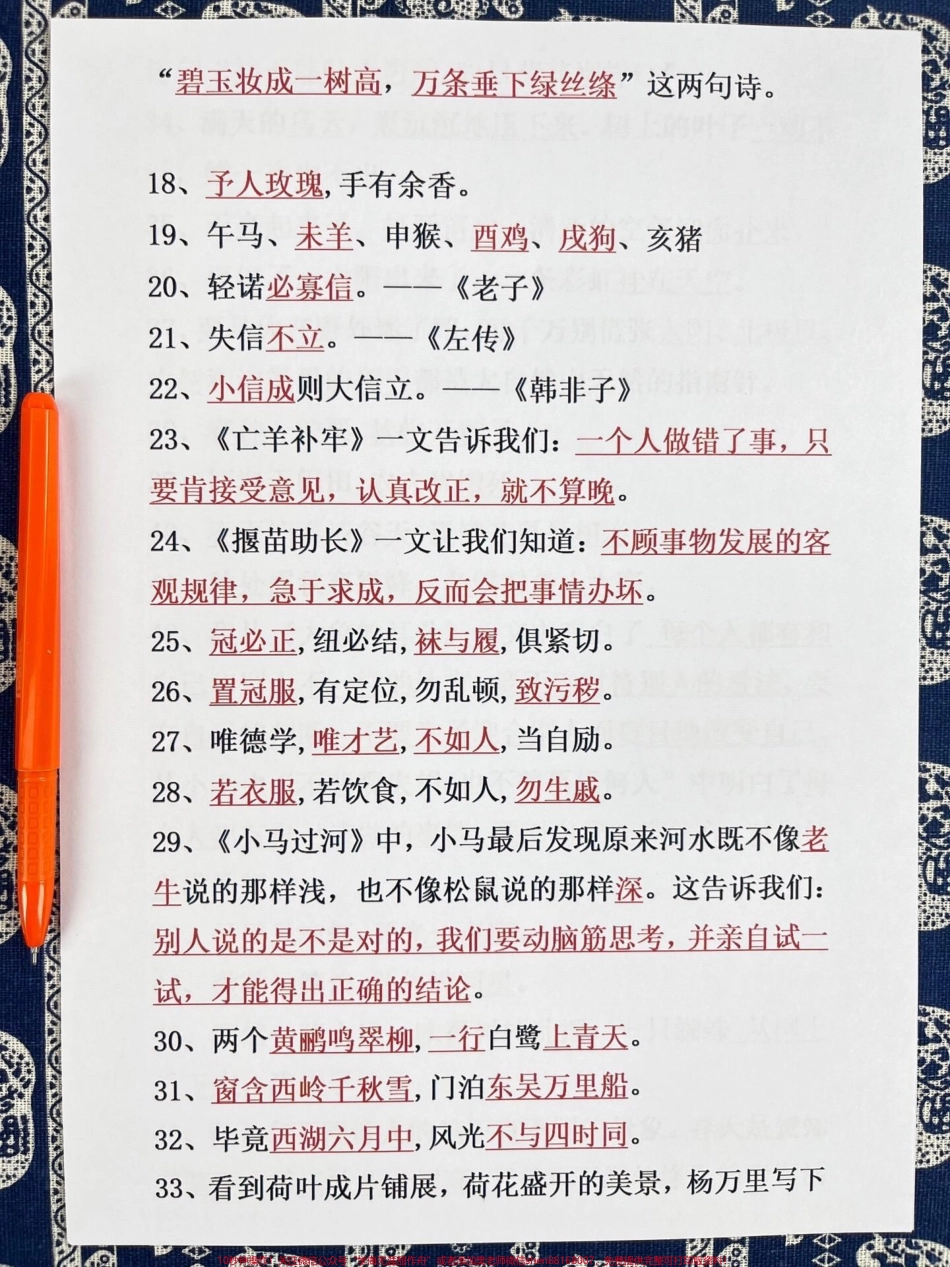 “碧玉妆成一树高，万条垂下绿丝绦”这两句诗。
18、予人玫瑰,手有余香。
19、午马、未羊、申猴、酉鸡、戌狗、亥猪
20、轻诺必寡信。——《老子》
21、失信不立。——《左传》
22、小信成则大信立。 《韩非子》
23、《亡羊补牢》一文告诉我们：一个人做错了事，只
要肯接受意见，认真改正，就不算晚。
24、《揠苗助长》一文让我们知道：不顾事物发展的客
观规律，急于求成，反而会把事情办坏。
25、冠必正,纽必结,袜与履,俱紧切。
26、置冠服,有定位,勿乱顿,致污秽。
27、唯德学,唯才艺,不如人,当自励。
28、若衣服,若饮食,不如人,勿生戚。
29、《小马过河》中，小马最后发现原来河水既不像老
牛说的那样浅，也不像松鼠说的那样深。这告诉我们：
别人说的是不是对的，我们要动脑筋思考，并亲自试一
试，才能得出正确的结论。
30、两个黄鹂鸣翠柳,一行白鹭上青天。
31、窗含西岭千秋雪,门泊东吴万里船。
32、毕竟西湖六月中,风光不与四时同。
33、看到荷叶成片铺展，荷花盛开的美景，杨万里写下